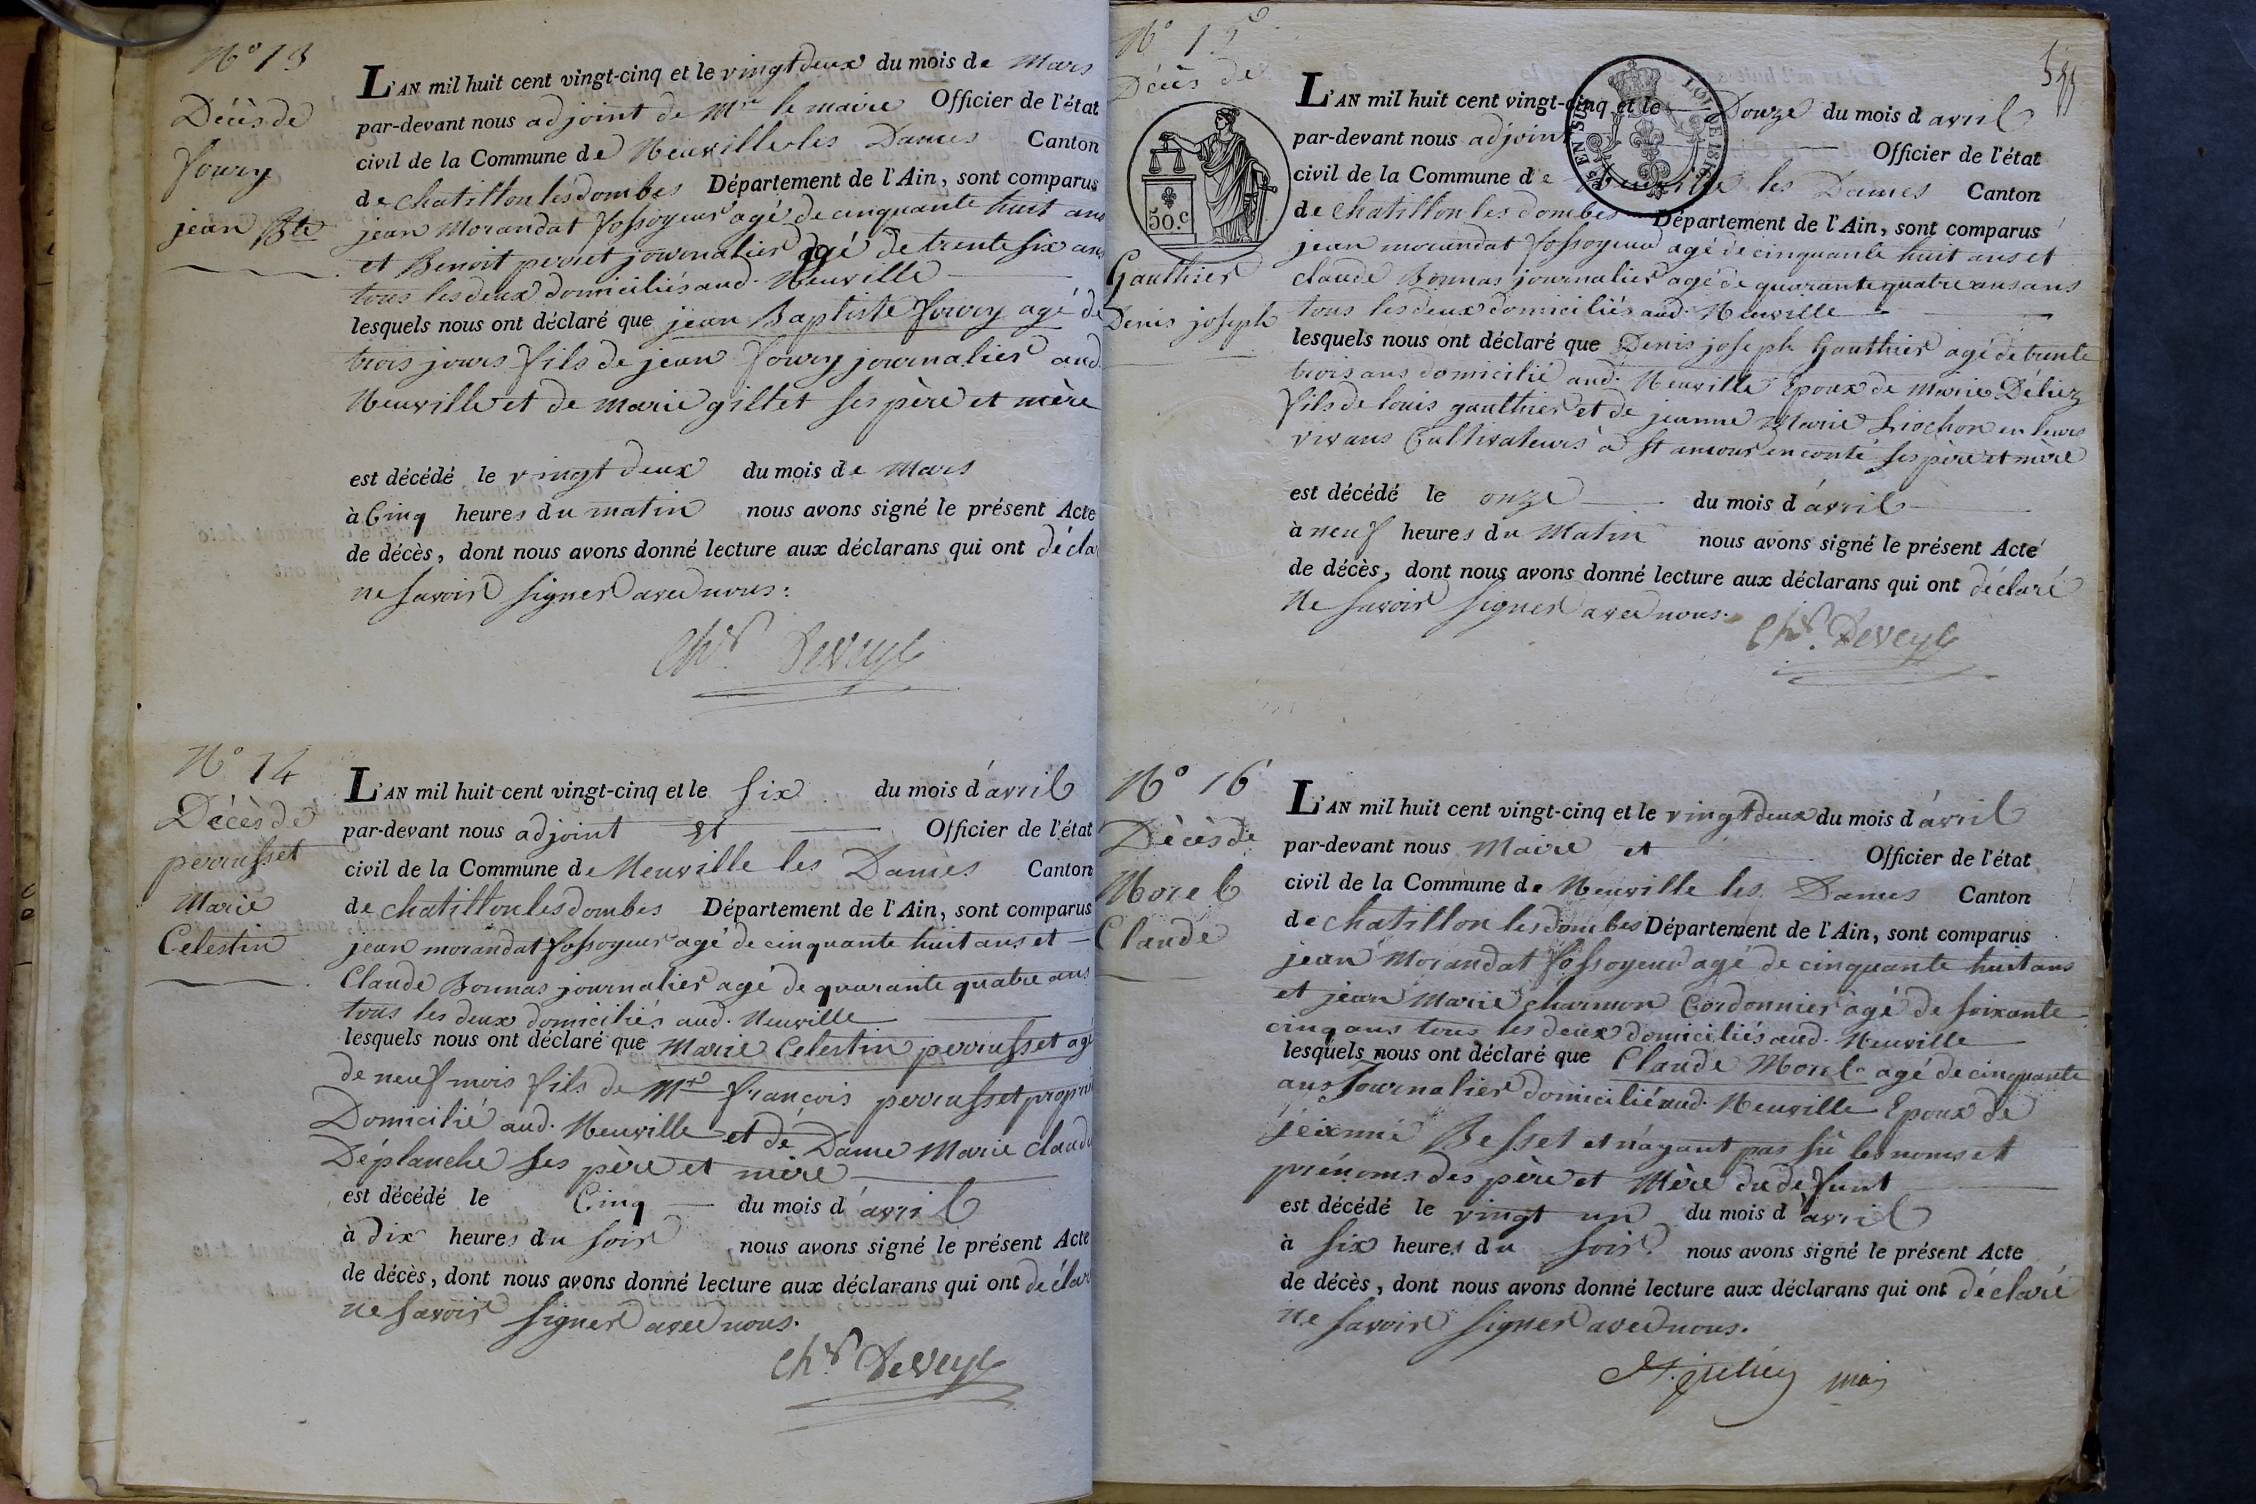 N° 13
Décès de
foury
jean Bte
L'AN mil huit cent vingt-cinq et le vingt deux du mois de Mars
par-devant nous adjoint de Mr le maire Officier de l'état
civil de la Commune de Neuville les Dames Canton
de chatillon les dombes Département de l'Ain, sont comparus
jean Morandat fossoyeur agé de cinquante huit ans
et Benoit perret journalier agé de trente six ans
tous les deux domiciliés aud. Neuville
lesquels nous ont déclaré que jean Baptiste foury agé de
trois jours fils de jean foury journalier aud.
Neuville et de Marie gillet ses père et mère
est décédé le vingt deux du mois de Mars
à Cinq heures du matin nous avons signé le présent Acte
de décès, dont nous avons donné lecture aux déclarans qui ont décla
ne savoir signer avec nous.
Chr. DeVeyl
N° 14
Décès de
perrusset
Marie
Celestin
L'AN mil huit cent vingt-cinq et le six du mois d'avril
par-devant nous adjoint et Officier de l'état
civil de la Commune de Neuville les Dames Canton
de chatillon les dombes Département de l'Ain, sont comparus
jean morandat fossoyeur agé de cinquante huit ans et
Claude Bonnas journalier agé de quarante quatre ans
tous les deux domiciliés aud. Neuville
lesquels nous ont déclaré que Marie Celestin perrusset agé
de neuf mois fils de Mr françois perrusset proprié
Domicilié aud. Neuville et de Dame Marie Claud
Déplanche ses père et mère
est décédé le Cinq du mois d'avril
à Dix heures du soir nous avons signé le présent Acte
de décès, dont nous avons donné lecture aux déclarans qui ont déclar
ne savoir signer avec nous.
Chr. DeVeyl
N° 15
Décès de
50.c
Gauthier
Denis joseph
L'AN mil huit cent vingt-cinq et le Douze du mois d avril
par-devant nous adjoint Officier de l'état
civil de la Commune de Neuville les Dames Canton
de chatillon les dombes Département de l'Ain, sont comparus
jean morandat fossoyeur agé de cinquante huit ans et
claude Bonnas journalier agé de quarante quatre ans ans
tous les deux domiciliés aud. Neuville
lesquels nous ont déclaré que Denis joseph Gauthier agé de trente
trois ans domicilié aud. Neuville Epoux de Marie Déliez
fils de louis gauthier et de jeanne Marie Liochon en leurs
vivans Cultivateurs à St amour en conté ses père et mère
est décédé le onze du mois d'avril
à neuf heures du Matin nous avons signé le présent Acte
de décès, dont nous avons donné lecture aux déclarans qui ont déclaré
Ne savoir signer avec nous.
Chr. DeVeyl
N° 16
Décès de
Morel
Claude
L'AN mil huit cent vingt-cinq et le vingt deux du mois d'avril
par-devant nous Maire et Officier de l'état
civil de la Commune de Neuville les Dames Canton
de chatillon les dombes Département de l'Ain, sont comparus
jean Morandat fossoyeur agé de cinquante huit ans
et jean Marie charmon Cordonnier agé de soixante
cinq ans tous les deux domiciliés aud. Neuville
lesquels nous ont déclaré que Claude Morel agé de cinquante
ans Journalier domicilié aud. Neuville Epoux de
jeanne Besset et n'ayant pas sû les noms et
prénoms des père et Mère du défunt
est décédé le vingt un du mois d'avril
à six heures du soir nous avons signé le présent Acte
de décès, dont nous avons donné lecture aux déclarans qui ont déclaré
ne savoir signer avec nous.